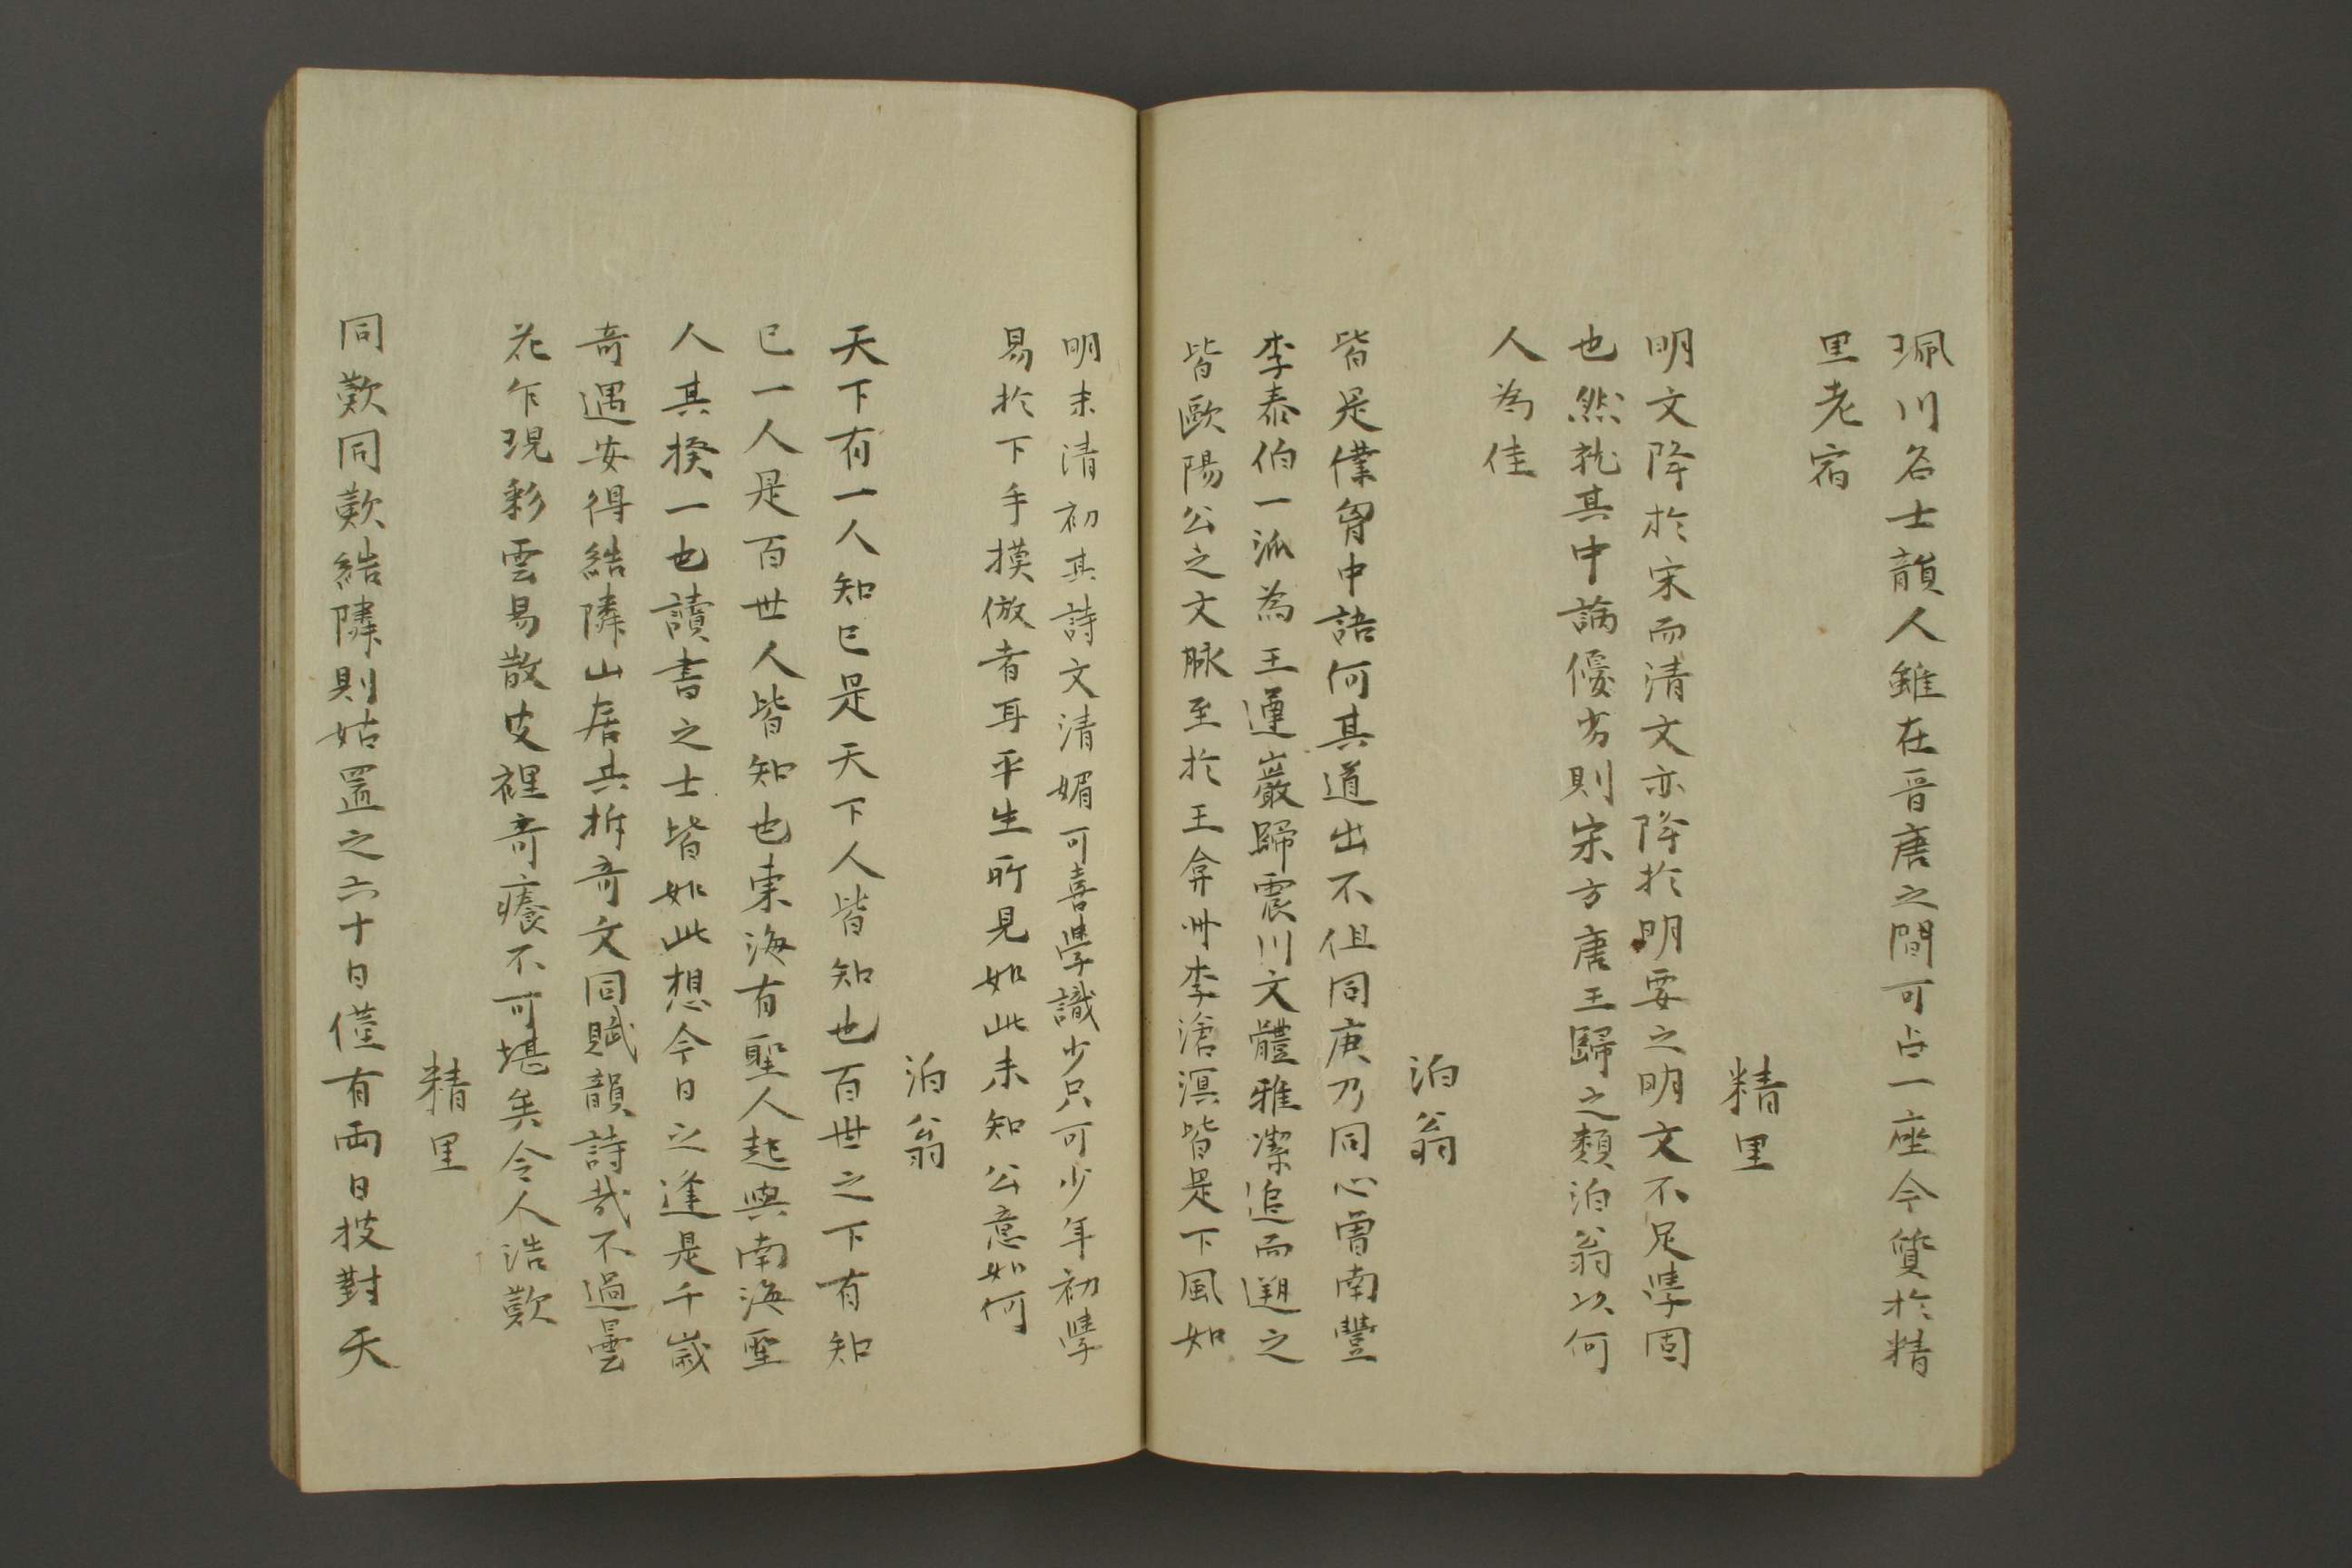 珮川名士韻人雖在晋唐之間可占一座今質於精
里老宿
精里
明文降於宋而清文亦降於明要之明文不足學固
也然就其中論優劣則宋方唐王歸之類泊翁以何
人為佳
泊翁
皆是僕胷中語何其道出不但同庚乃同心曽南豐
李泰伯一派為王遵巖歸震川文體雅潔追而遡之
皆歐陽公之文脉至於王弇州李滄溟皆是下風如
明末清初其詩文清媚可喜學識少只可少年初學
易於下手摸倣者耳平生所見如此未知公意如何
泊翁
天下有一人知已是天下人皆知也百世之下有知
已一人是百世人皆知也東海有聖人起與南海聖
人其揆一也讀書之士皆如此想今日之逢是千歳
奇遇安得結隣山居共析奇文同賦韻詩哉不過曇
花乍現彩雲易散皮裡奇癢不可堪矣令人浩歎
精里
同歎同歎結隣則姑置之六十日僅有両日接對天